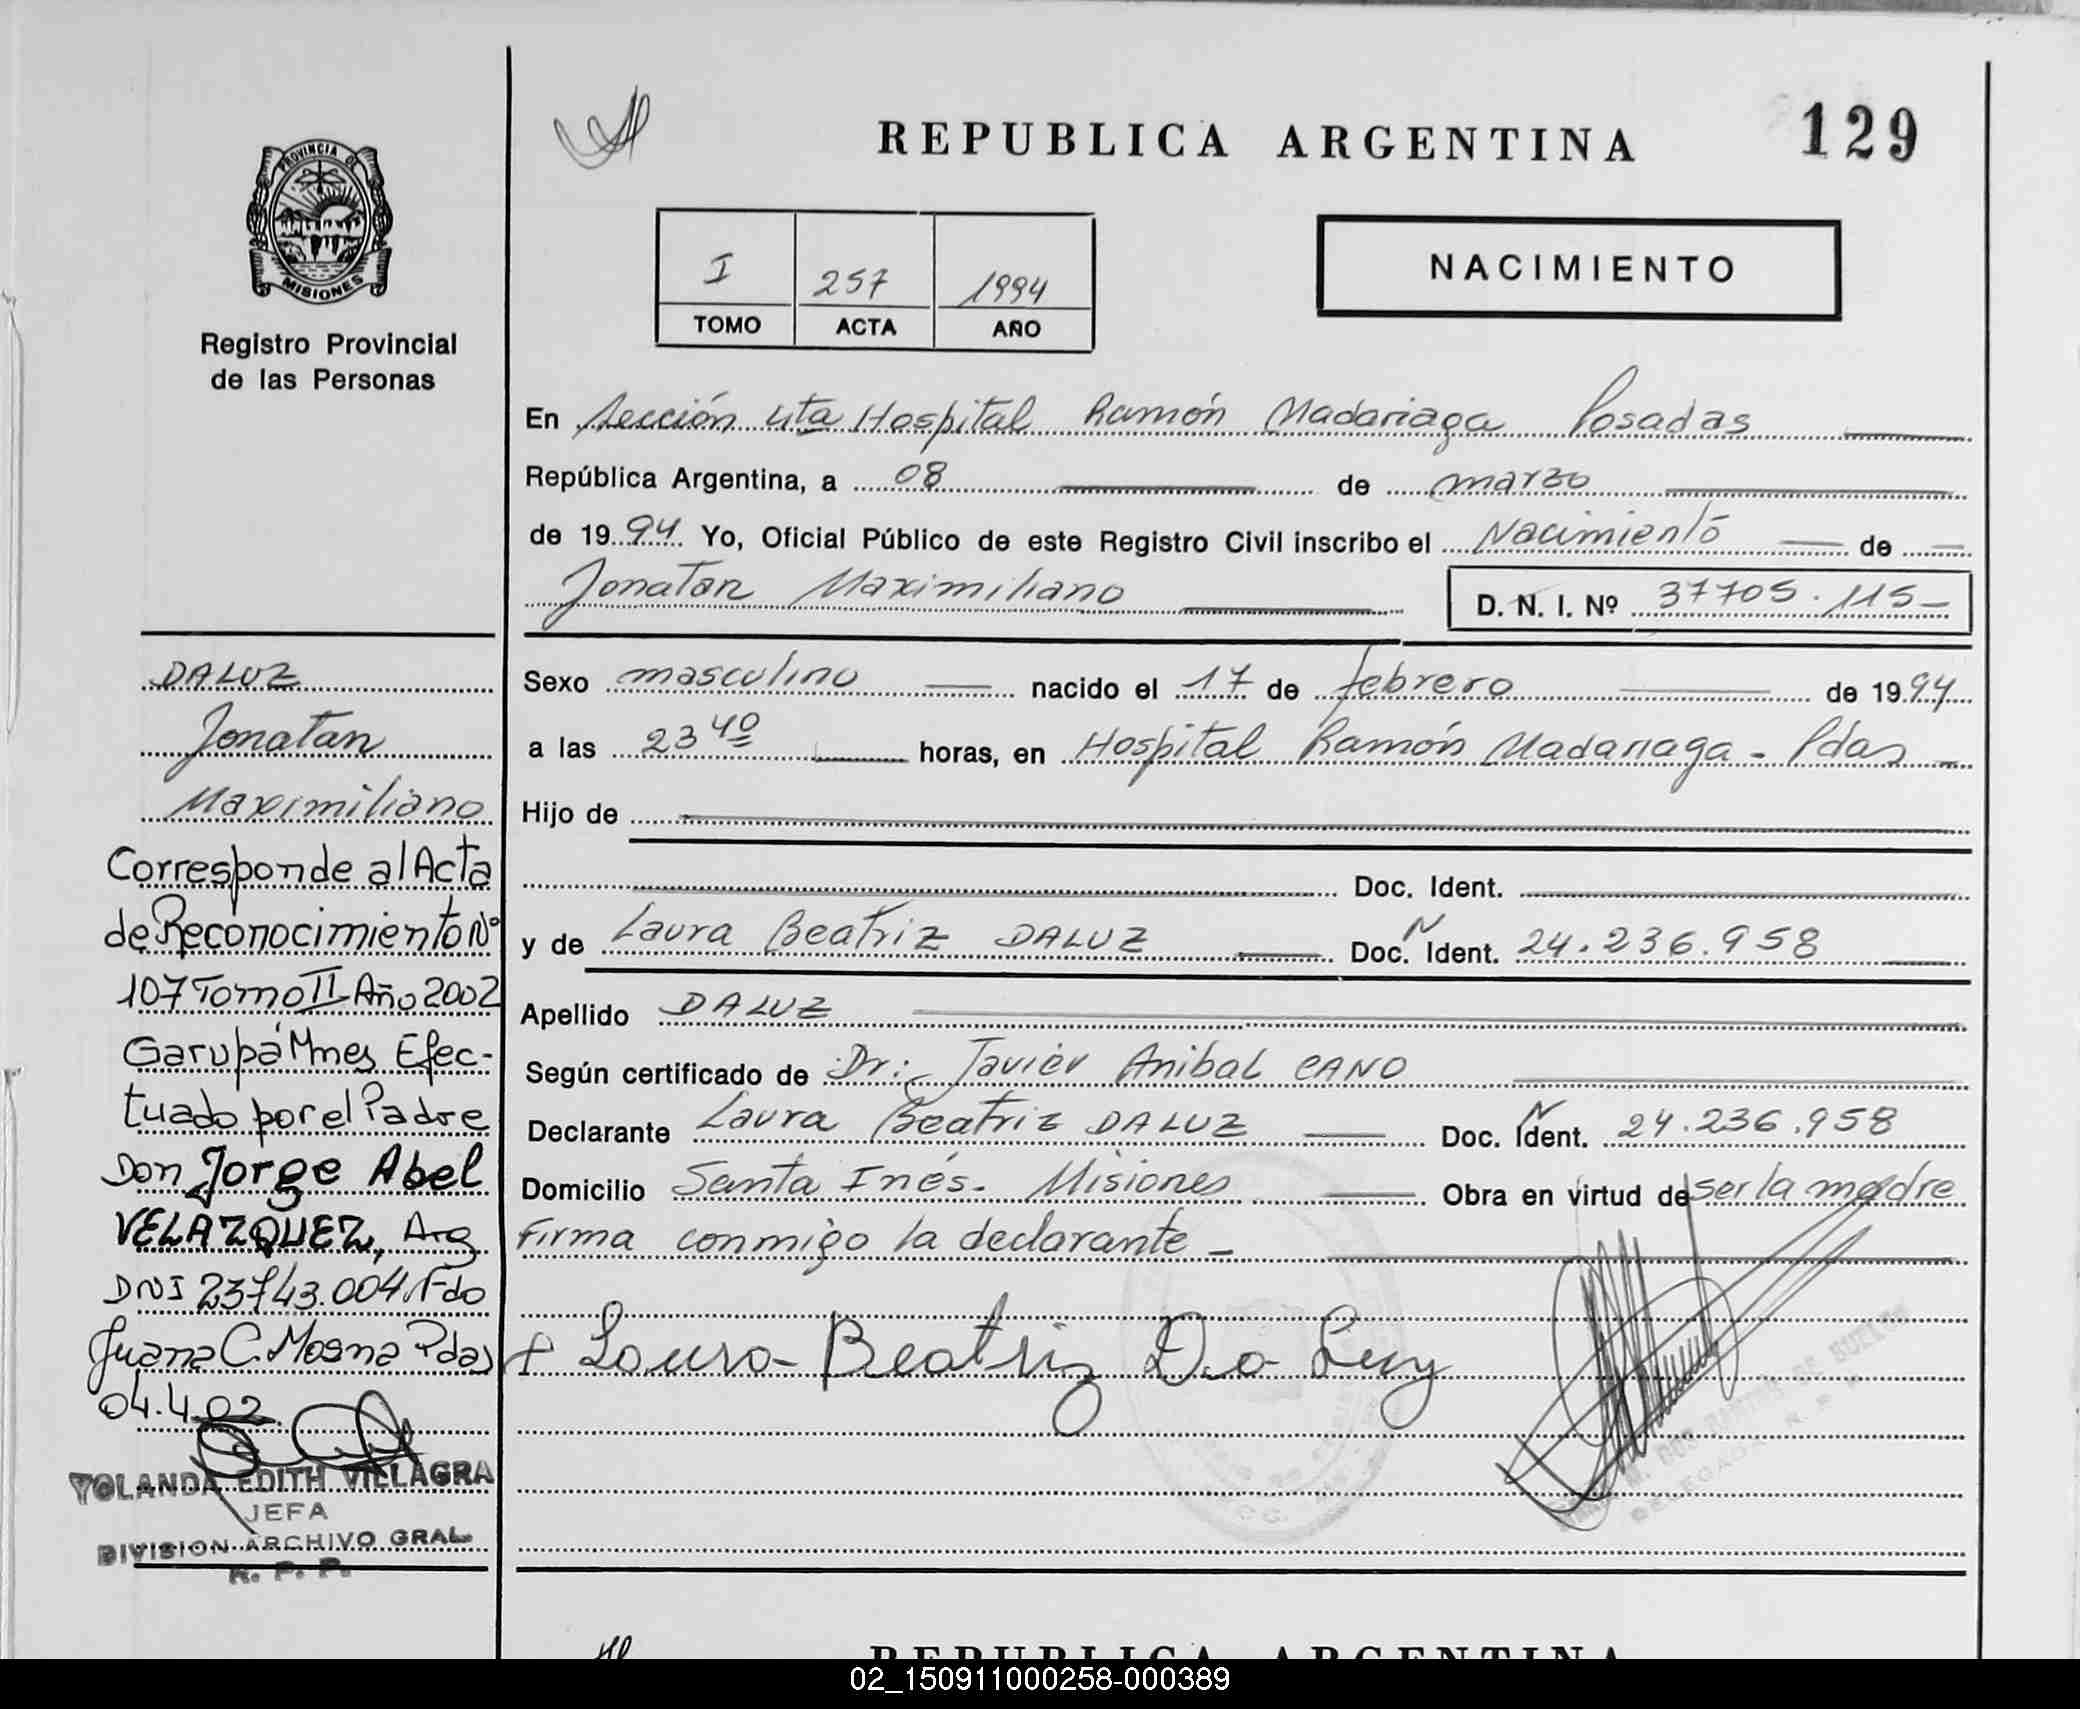 REPUBLICA ARGENTINA
129
PROVINCIA DE
MISIONES
Registro Provincial
de las Personas
I 257 1994
TOMO ACTA AÑO
NACIMIENTO
En Sección 4ta Hospital Ramón Madariaga Posadas
República Argentina, a 08 de marzo
de 1994 Yo, Oficial Público de este Registro Civil inscribo el Nacimiento de
Jonatan Maximiliano D. N. I. Nº 37705.115
Sexo masculino nacido el 17 de febrero de 1994
a las 23 40 horas, en Hospital Ramón Madariaga - Pdas
Hijo de
Doc. Ident.
y de Laura Beatriz DALUZ Doc. N Ident. 24.236.958
Apellido DALUZ
Según certificado de Dr.: Javier Anibal CANO
Declarante Laura Beatriz DALUZ Doc. N Ident. 24.236.958
Domicilio Santa Inés. Misiones Obra en virtud de ser la madre
Firma conmigo la declarante -
Laura Beatriz Da Luz
DALUZ
Jonatan
Maximiliano
Corresponde al Acta
de Reconocimiento Nº
107 Tomo II Año 2002
Garupá Mnes Efec-
tuado por el Padre
Don Jorge Abel
VELAZQUEZ, Arg
DNI 23743.004 Fdo
Juana C. Mosna Pdas
04.4.02
YOLANDA EDITH VILLAGRA
JEFA
DIVISION ARCHIVO GRAL.
R. P. P.
REPUBLICA ARGENTINA
02_150911000258-000389